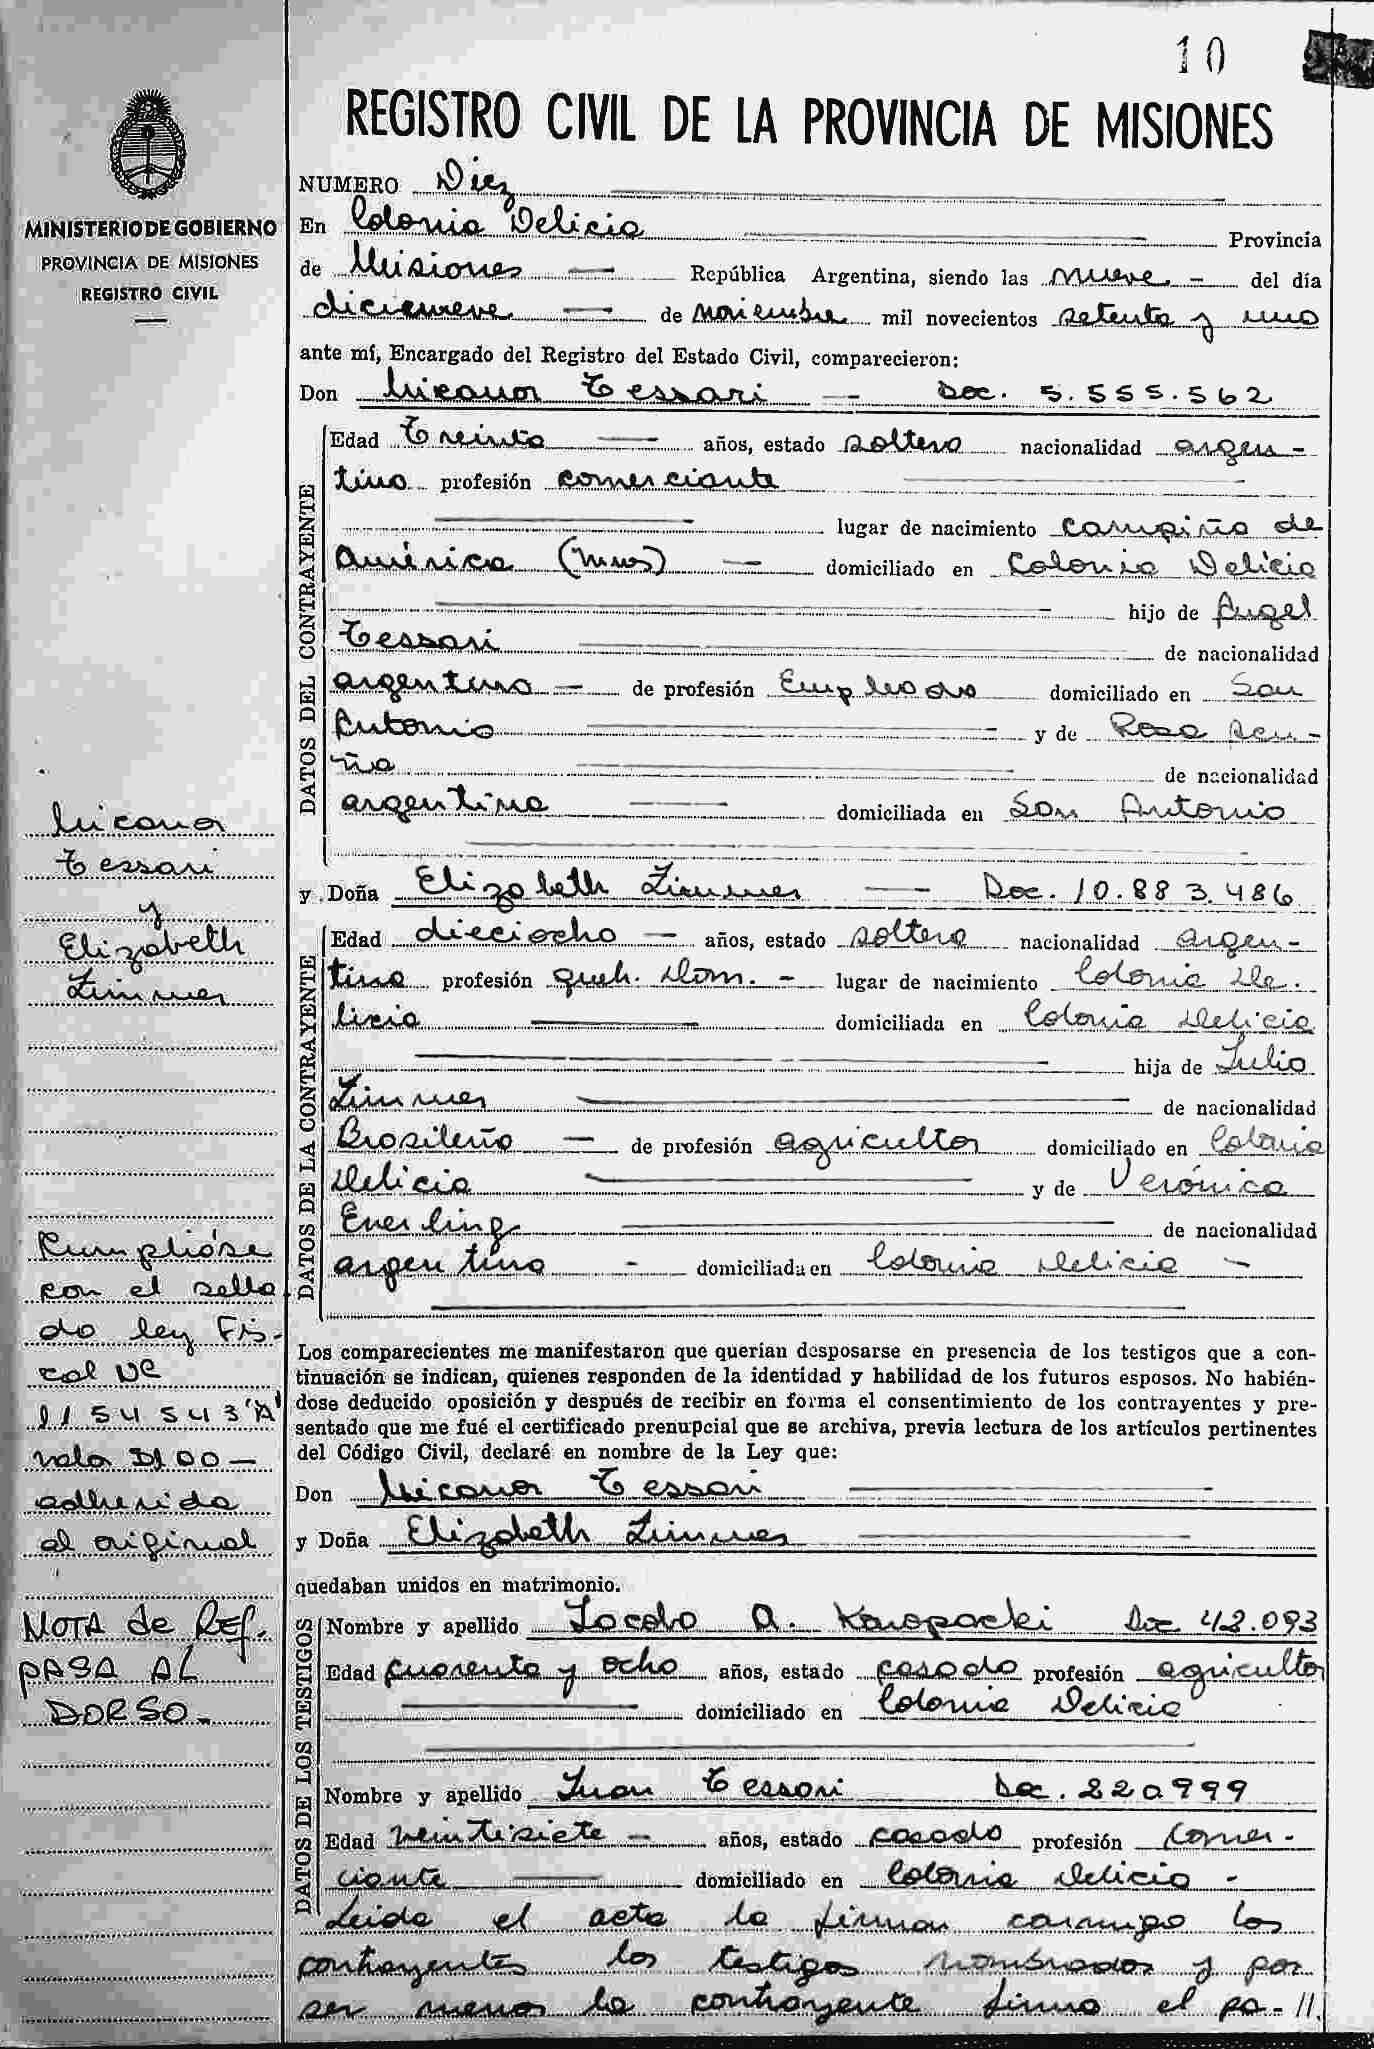 10
REGISTRO CIVIL DE LA PROVINCIA DE MISIONES
MINISTERIO DE GOBIERNO
PROVINCIA DE MISIONES
REGISTRO CIVIL
NUMERO Diez
En Colonia Delicia Provincia
de Misiones República Argentina, siendo las nueve del día
diecinueve de noviembre mil novecientos setenta y uno
ante mí, Encargado del Registro del Estado Civil, comparecieron:
Don Nicanor Tessari Doc. 5.555.562
DATOS DEL CONTRAYENTE
Edad Treinta años, estado soltero nacionalidad argen-
tino profesión comerciante
lugar de nacimiento campiña de
América (Mnes) domiciliado en Colonia Delicia
hijo de Angel
Tessari de nacionalidad
argentino de profesión Empleado domiciliado en San
Antonio y de Rosa Acu-
ña de nacionalidad
argentina domiciliada en San Antonio
y Doña Elizabeth Zimmer Doc. 10.883.486
DATOS DE LA CONTRAYENTE
Edad dieciocho años, estado soltera nacionalidad argen-
tina profesión queh. Dom. - lugar de nacimiento Colonia De-
licia domiciliada en Colonia Delicia
hija de Julio
Zimmer de nacionalidad
Brasileño de profesión agricultor domiciliado en Colonia
Delicia y de Verónica
Enerling de nacionalidad
argentina domiciliada en Colonia Delicia
Los comparecientes me manifestaron que querían desposarse en presencia de los testigos que a con-
tinuación se indican, quienes responden de la identidad y habilidad de los futuros esposos. No habién-
dose deducido oposición y después de recibir en forma el consentimiento de los contrayentes y pre-
sentado que me fué el certificado prenupcial que se archiva, previa lectura de los artículos pertinentes
del Código Civil, declaré en nombre de la Ley que:
Don Nicanor Tessari
y Doña Elizabeth Zimmer
quedaban unidos en matrimonio.
DATOS DE LOS TESTIGOS
Nombre y apellido Jacobo A. Karopacki Doc 42.093
Edad cuarenta y ocho años, estado casado profesión agricultor
domiciliado en Colonia Delicia
Nombre y apellido Juan Tessari Doc. 220999
Edad veintisiete años, estado casado profesión Comer-
ciante domiciliado en Colonia Delicia
Leida el acta la firman conmigo los
contrayentes los testigos nombrados y por
ser menor la contrayente firma el pa- //.
Nicanor
Tessari
y
Elizabeth
Zimmer
Cumplióse
con el sella
do ley Fis-
cal Nº
1154543"A"
valor $1.00-
adherido
al original
NOTA de REF.
PASA AL
DORSO-